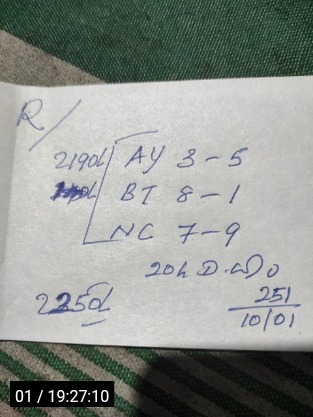 R/
2190/ AY 3-5
BT 8-1
NC 7-9
20
2250/
251
10/01
01 / 19:27:10